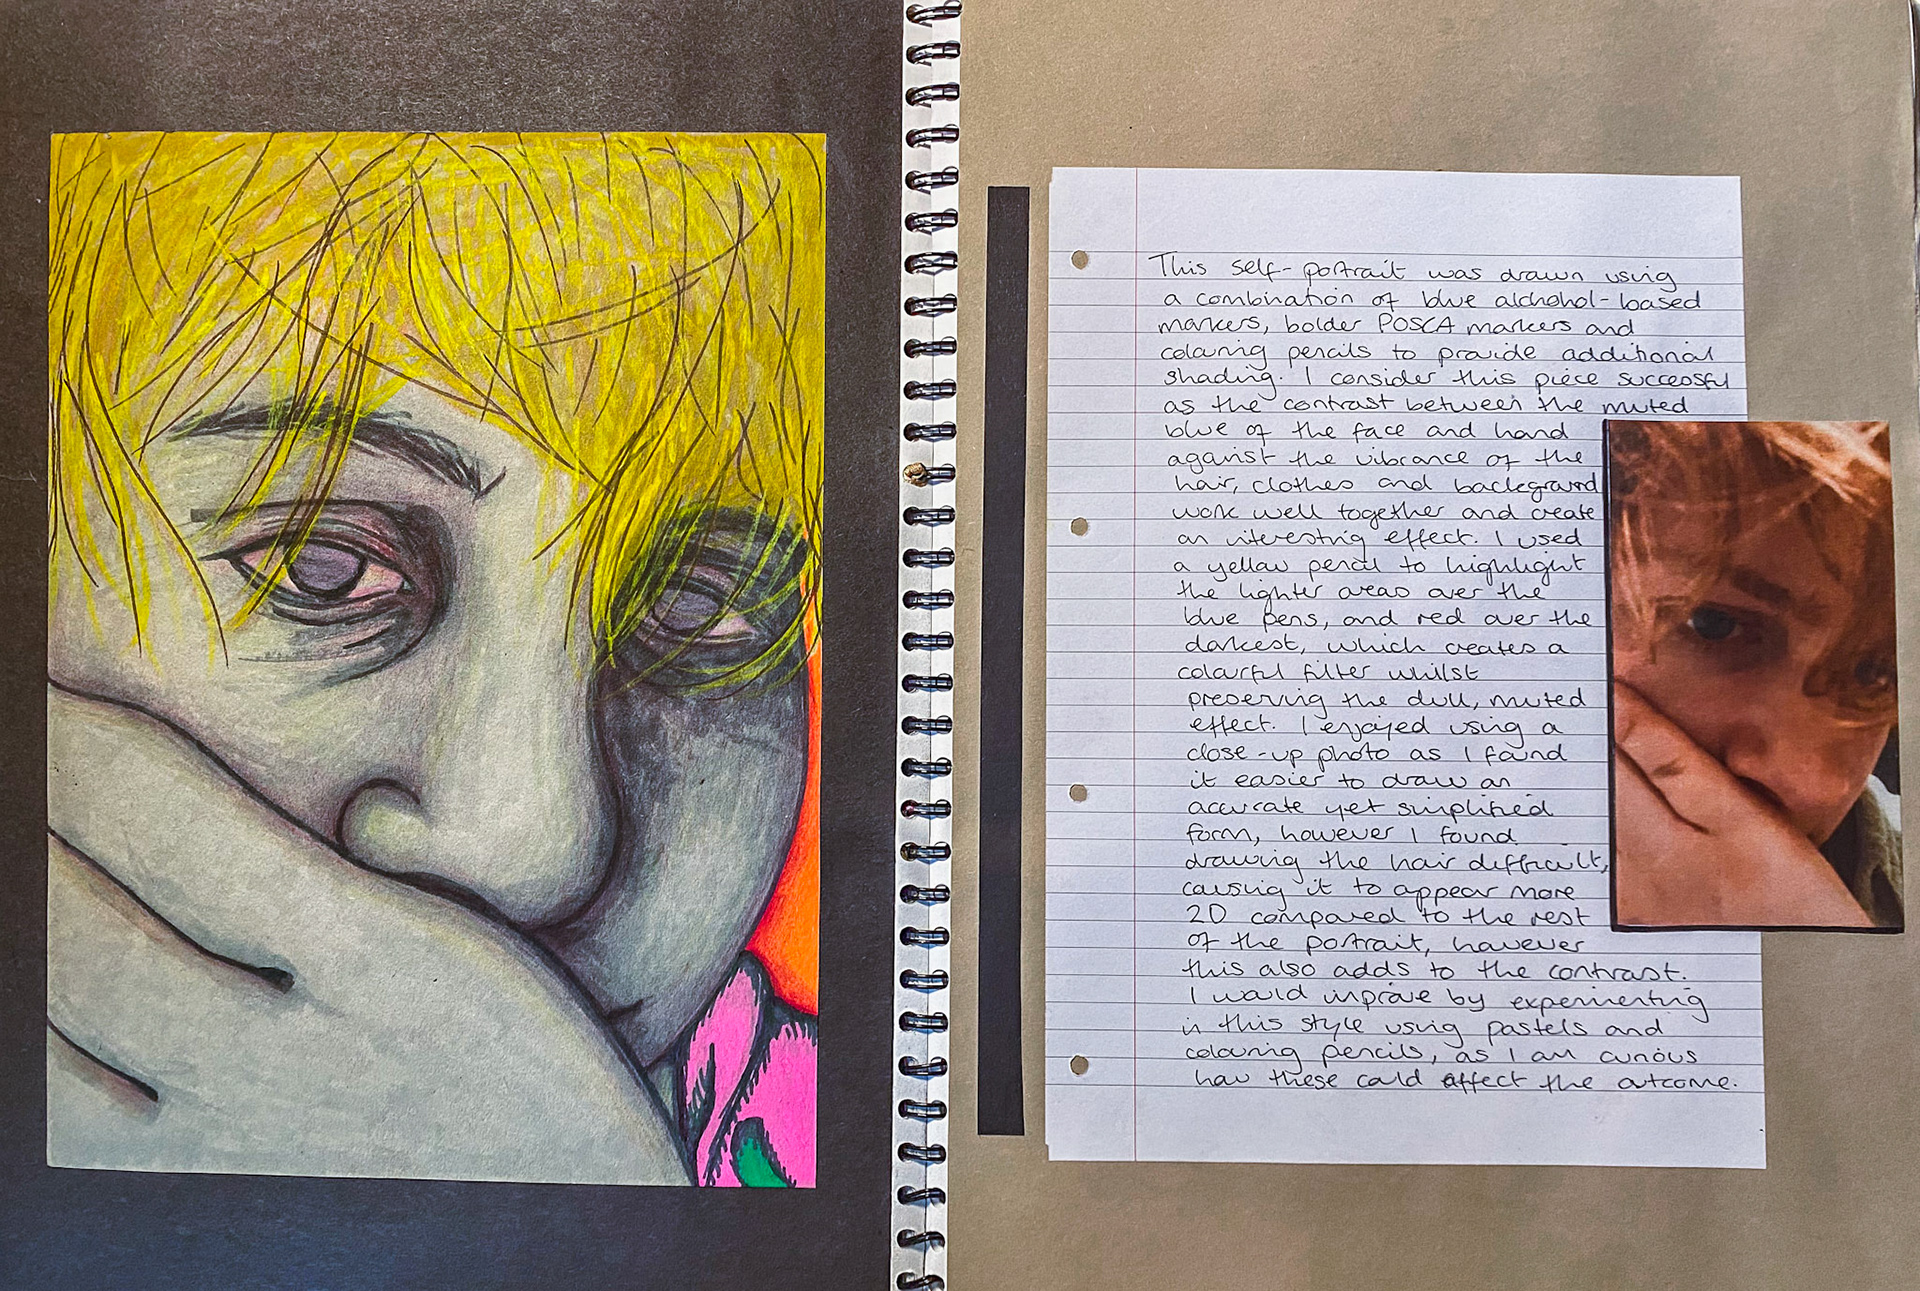 This self-portrait was drawn using
a combination of blue alchohol-based
markers, bolder POSCA markers and
colouring pencils to provide additional
shading. I consider this piece successful
as the contrast between the muted
blue of the face and hand
against the vibrance of the
hair, clothes and background
work well together and create
an interesting effect. I used
a yellow pencil to highlight
the lighter areas over the
blue pens, and red over the
darkest, which creates a
colourful filter whilst
preserving the dull, muted
effect. I enjoyed using a
close-up photo as I found
it easier to draw an
accurate yet simplified
form, however I found
drawing the hair difficult,
causing it to appear more
2D compared to the rest
of the portrait, however
this also adds to the contrast.
I would improve by experimenting
in this style using pastels and
colouring pencils, as I am curious
how these could affect the outcome.